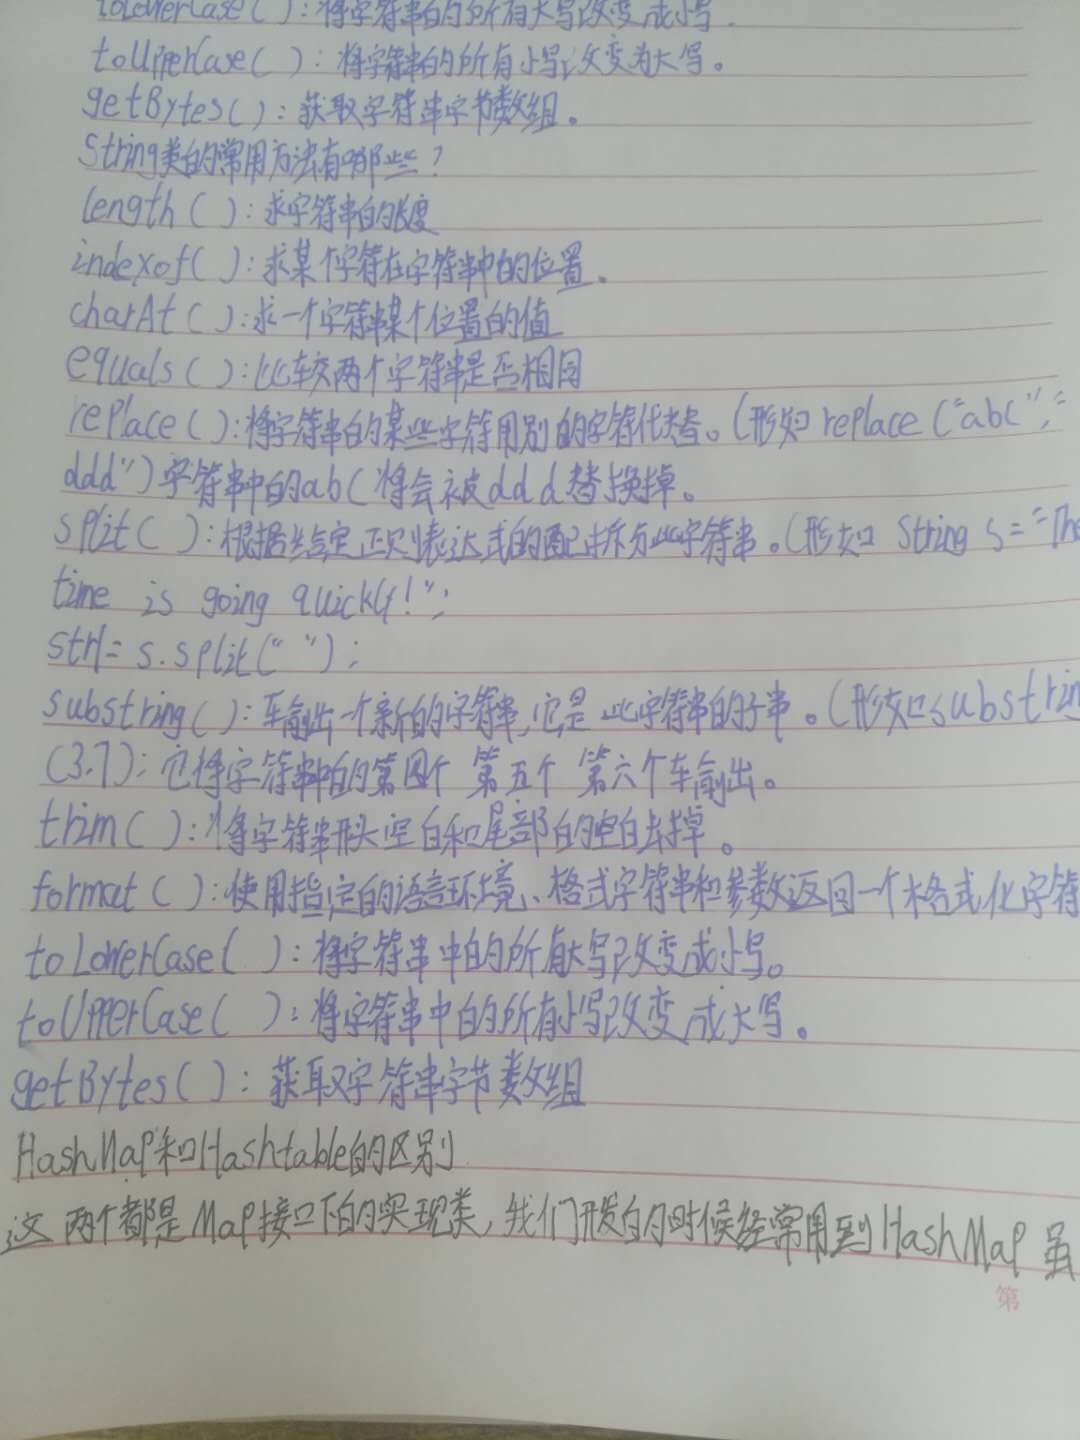 toLowerCase()：将字符串的所有大写改变成小写.
toUpperCase()：将字符串的所有小写改变为大写。
getBytes()：获取字符串字节数组。
String类的常用方法有哪些？
length()：求字符串的长度
indexof()：求某个字符在字符串中的位置。
charAt()：求一个字符串某个位置的值
equals()：比较两个字符串是否相同
replace()：将字符串的某些字符用别的字符代替。(形如replace("abc","
ddd")字符串中的abc将会被ddd替换掉。
split()：根据给定正则表达式的匹配拆分此字符串。(形如 String s="The
time is going quickly!";
str1=s.split(" ");
substring()：输出一个新的字符串,它是此字符串的子串。(形如substring
(3.7);它将字符串中的第四个 第五个 第六个输出。
trim()：将字符串开头空白和尾部的空白去掉。
format()：使用指定的语言环境、格式字符串和参数返回一个格式化字符
toLowerCase()：将字符串中的所有大写改变成小写。
toUpperCase()：将字符串中的所有小写改变成大写。
getBytes()：获取字符串字节数组
HashMap和Hashtable的区别
这两个都是Map接口下的实现类,我们开发的时候经常用到HashMap 虽
第